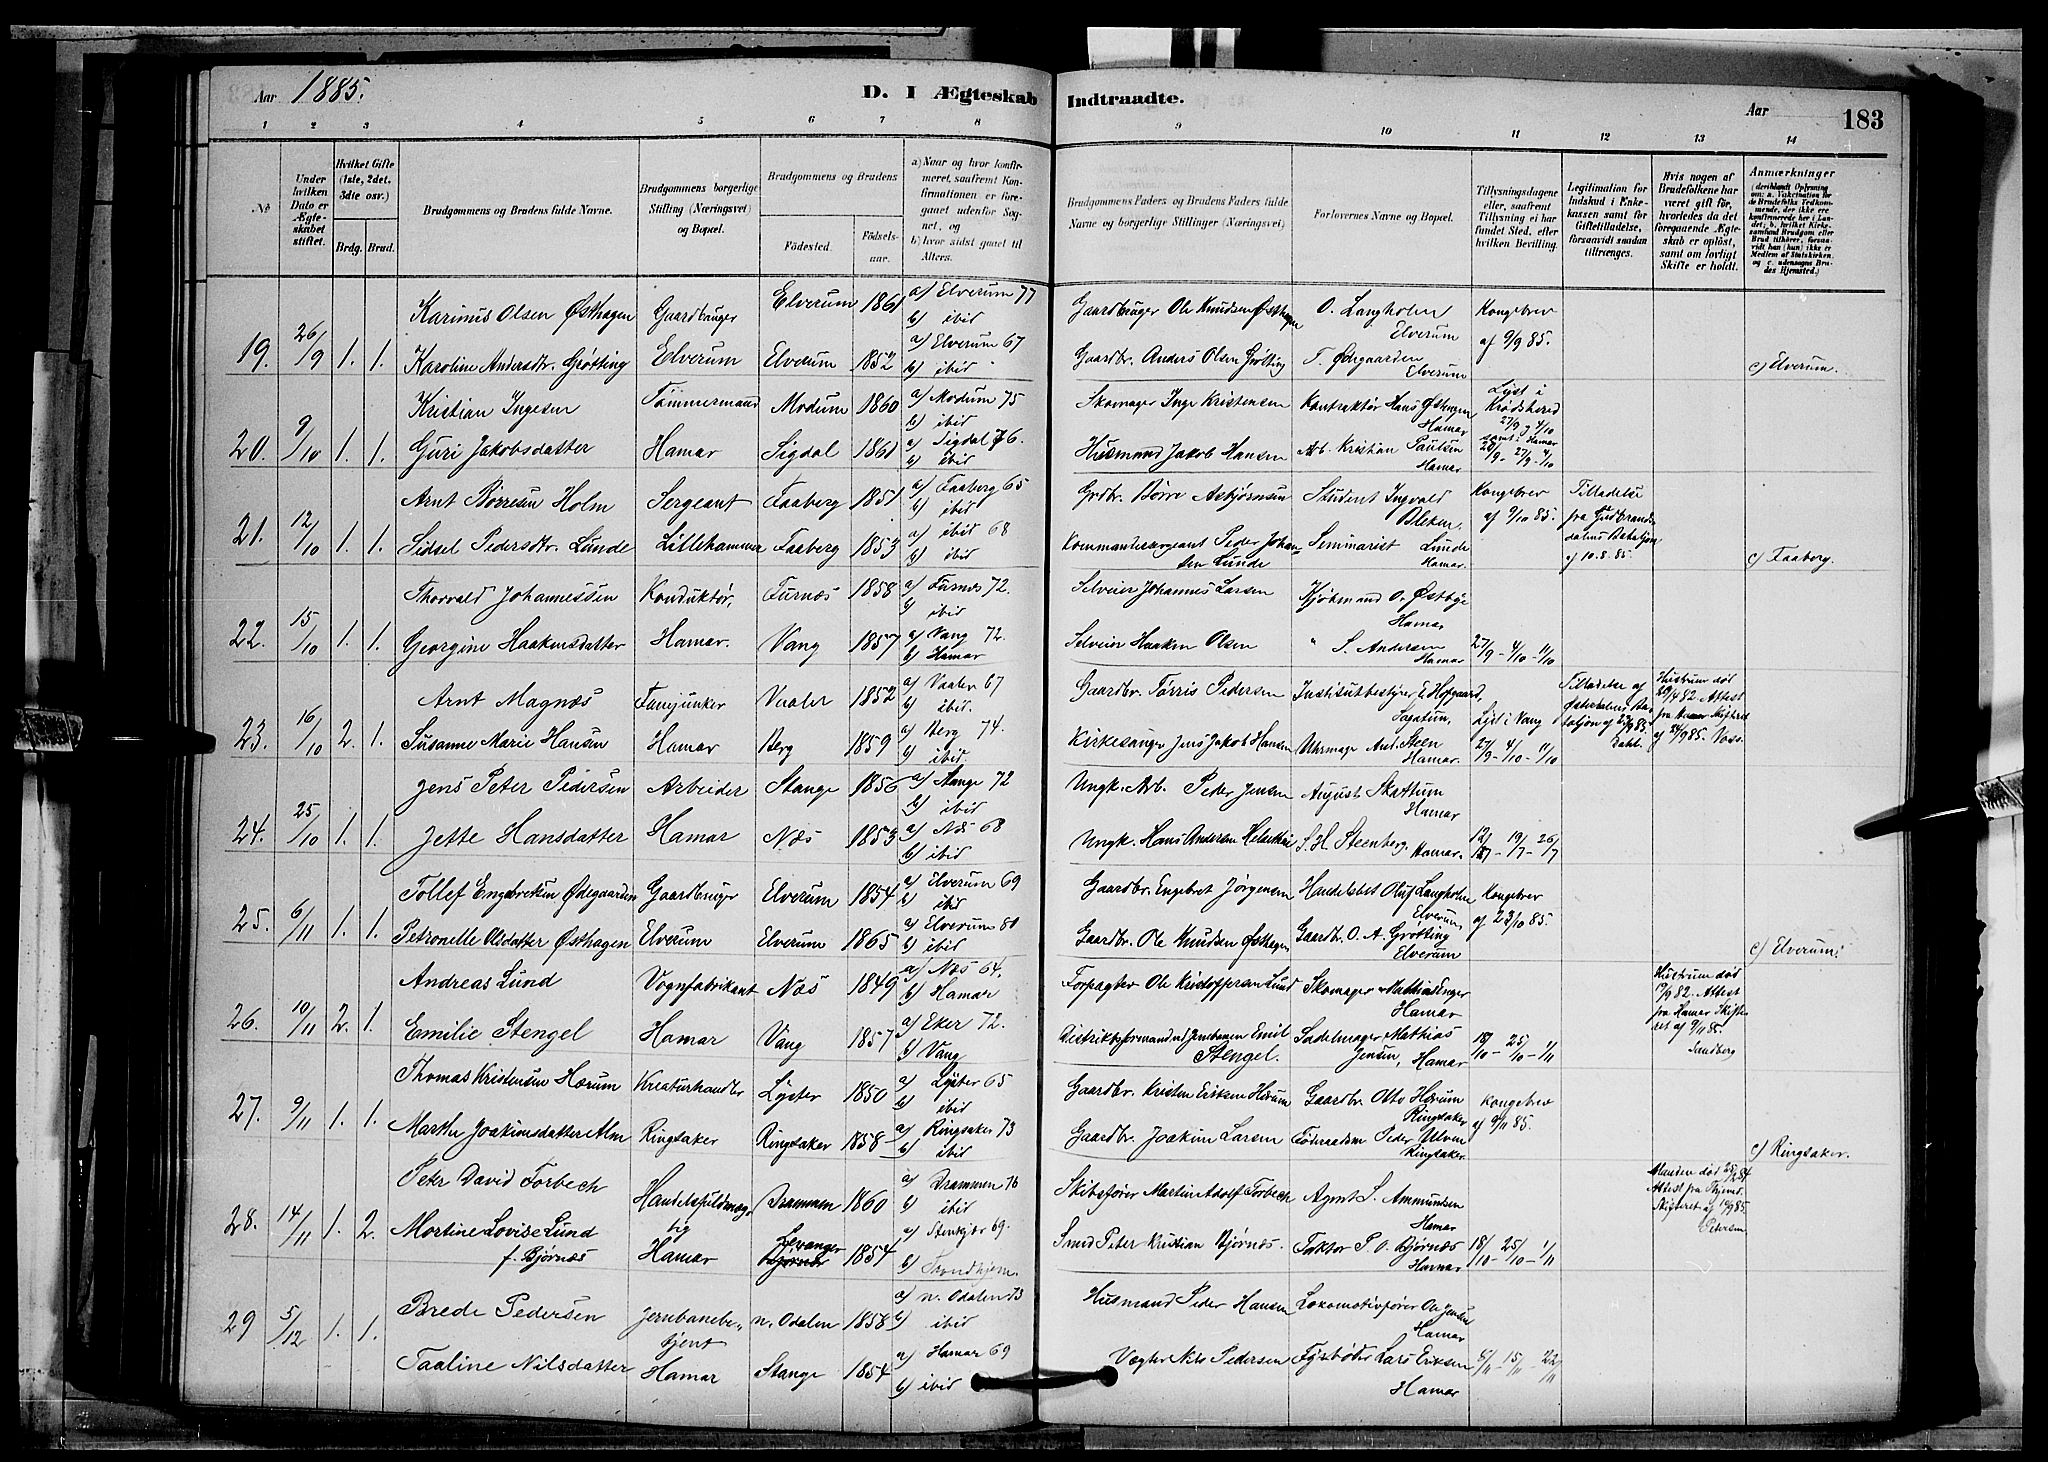 Aar 1885. D. I Ægteskab Indtraadte. Aar 183
1 2 3 4 5 6 7 8 9 10 11 12 13 14
No
Under hvilken Dato er Ægteskabet stiftet.
Hvilket Gifte (1ste, 2det, 3die osv.)
Brdg. Brud.
Brudgommens og Brudens fulde Navne.
Brudgommens borgerlige Stilling (Næringsvei) og Bopæl.
Brudgommens og Brudens
Fødested. Fødsels-aar.
a) Naar og hvor konfirmeret, saafremt Konfirmationen er foregaaet udenfor Sognet, og
b) hvor sidst gaaet til Alters.
Brudgommens Faders og Brudens Faders fulde Navne og borgerlige Stillinger (Næringsvei)
Forlovernes Navne og Bopæl.
Tillysningsdagene eller, saafremt Tillysning ei har fundet Sted, efter hvilken Bevilling.
Legitimation for Indskud i Enkekassen samt for Giftetilladelse, forsaavidt saadan tiltrænges.
Hvis nogen af Brudefolkene har været gift før, hvorledes da det foregaaende Ægteskab er opløst, samt om lovligt Skifte er holdt.
Anmærkninger
19. 26/9 1. 1.
Karinus Olsen Østhagen Gaardbruger Elverum 1861 a) Elverum 77 b) ibid Gaardbruger Ole Knudsen Østhagen O. Langholm Elverum Kongebrev af 9/9 85.
Karoline Andersdtr. Grøtting Elverum Elverum 1852 a) Elverum 67 b) ibid Gaardbr. Anders Olsen Grøtting T. Ødegaarden Elverum c) Elverum.
20. 9/10 1. 1.
Kristian Ingesen Tømmermand Modum 1860 a) Modum 75 b) ibid Skomager Inge Kristensen Kontraktør Hans Østhagen Hamar Lyst i Krødsherred 27/9 og 4/10 samt i Hamar
Guri Jakobsdatter Hamar Sigdal 1861 a) Sigdal 76. b) ibid Husmand Jakob Hansen Arb. Kristian Paulsen Hamar 20/9 - 27/9 - 4/10
21. 12/10 1. 1.
Arnt Børresen Holm Sergeant Faaberg 1851 a) Faaberg 65 b) ibid Grdbr. Børre Asbjørnsen Student Ingvald Bleken. Kongebrev af 9/10 85. Tilladelse fra Gudbrandsdalens Bataljon af 10.8.85.
Sidsel Pedersdtr. Lunde Lillehammer Faaberg 1853 a) ibid 68 b) ibid Kommandersergeant Peder Johansen Lunde Seminarist Lunde Hamar. c) Faaberg.
22. 15/10 1. 1.
Thorvald Johannessen Konduktør, Furnæs 1858 a) Furnæs 72. b) ibid Selveier Johannes Larsen Kjøbmand O. Østbye Hamar
Georgine Haakensdatter Hamar. Vang 1857 a) Vang 72. b) Hamar Selveier Haaken Olsen " S. Andersen Hamar 27/9 - 4/10 - 11/10
23. 16/10 2. 1.
Arnt Magnæs Fanejunker Vaaler 1852 a) Vaaler 67 b) ibid. Gaardbr. Torris Pedersen Institutbestyrer E. Hofgaard, Sagatun, Lyst i Vang Tilladelse af Østerdalens Bataljon af 22/9 85. Dahl. Hustruen død 29/4 82. Attest fra Hamar Skifteret af 24/9 85.
Susanne Marie Hansen Hamar Berg 1859 a) Berg 74. b) ibid. Kirkesanger Jens Jakob Hansen Uhrmager Ant. Steen Hamar. 27/9 - 4/10 - 11/10
24. 25/10 1. 1.
Jens Peter Pedersen Arbeider Stange 1856 a) Stange 72 b) ibid Ungk. Arb. Peder Jensen August Skattum Hamar
Jette Hansdatter Hamar Næs 1853 a) Næs 68 b) ibid Ungk. Hans Andersen S. H. Steenberg, Hamar. 12/7 - 19/7 - 26/7
25. 6/11 1. 1.
Tollef Engebretsen Ødegaarden Gaardbruger Elverum 1854 a) Elverum 69 b) ibid Gaardbr. Engebret Jørgensen Handelsbet Oluf Langholm Elverum Kongebrev af 23/10 85.
Petronelle Olsdatter Østhagen Elverum Elverum 1865 a) Elverum 80 b) ibid Gaardbr. Ole Knudsen Østhagen Gaardbr. O. A. Grøtting Elverum c) Elverum.
26. 10/11 2. 1.
Andreas Lund Vognfabrikant Næs 1849 a) Næs 64. b) Hamar Forpagter Ole Kristoffersen Lund Skomager Mathias Enger Hamar Hustruen død 17/9 82. Attest fra Hamar Skifteret af 9/11 85 Sandberg
Emilie Stengel Hamar Vang 1857 a) Eker 72. b) Vang Distriktsformand ved Jernbanen Emil Stengel. Sadelmager Mathias Jensen, Hamar 18/10 - 25/10 - 1/11
27. 9/11 1. 1.
Thomas Kristensen Hærum Kreaturhandler Lyster 1850 a) Lyster 65 b) ibid Gaardbr. Kristen Eriksen Hærum Gaardbr. Otto Hærum Ringsaker Kongebrev af 9/11 85.
Marthe Joakimsdatter Alm Ringsaker Ringsaker 1858 a) Ringsaker 73 b) ibid Gaardbr. Joakim Larsen Peder Ulven Ringsaker. c) Ringsaker.
28. 14/11 1. 2.
Peter David Forbech Handelsfuldmægtig Drammen 1860 a) Drammen 76 b) ibid Skibsfører Martin Adolf Forbech Agent S. Ammundsen Hamar Manden død 25/2 84 Attest fra Thjems Skifteret af 14/9 85 Petersen
Martine Lovise Lund f. Bjørnæs Hamar Levanger 1854 a) Stenkjær 69. b) Trondhjem. Smed Peter Kristian Bjørnæs. Faktor P. O. Bjørnæs Hamar 18/10 - 25/10 - 1/11
29 5/12 1. 1.
Brede Pedersen Jernbanebetjent n. Odalen 1858 a) n. Odalen 73 b) ibid Husmand Peder Hansen Lokomotivfører Ole Jensen Hamar
Taaline Nilsdatter Hamar Stange 1854 a) Hamar 69 b) ibid Vægter Nils Pedersen Fyrbøder Lars Eriksen Hamar 8/11 - 15/11 - 22/11